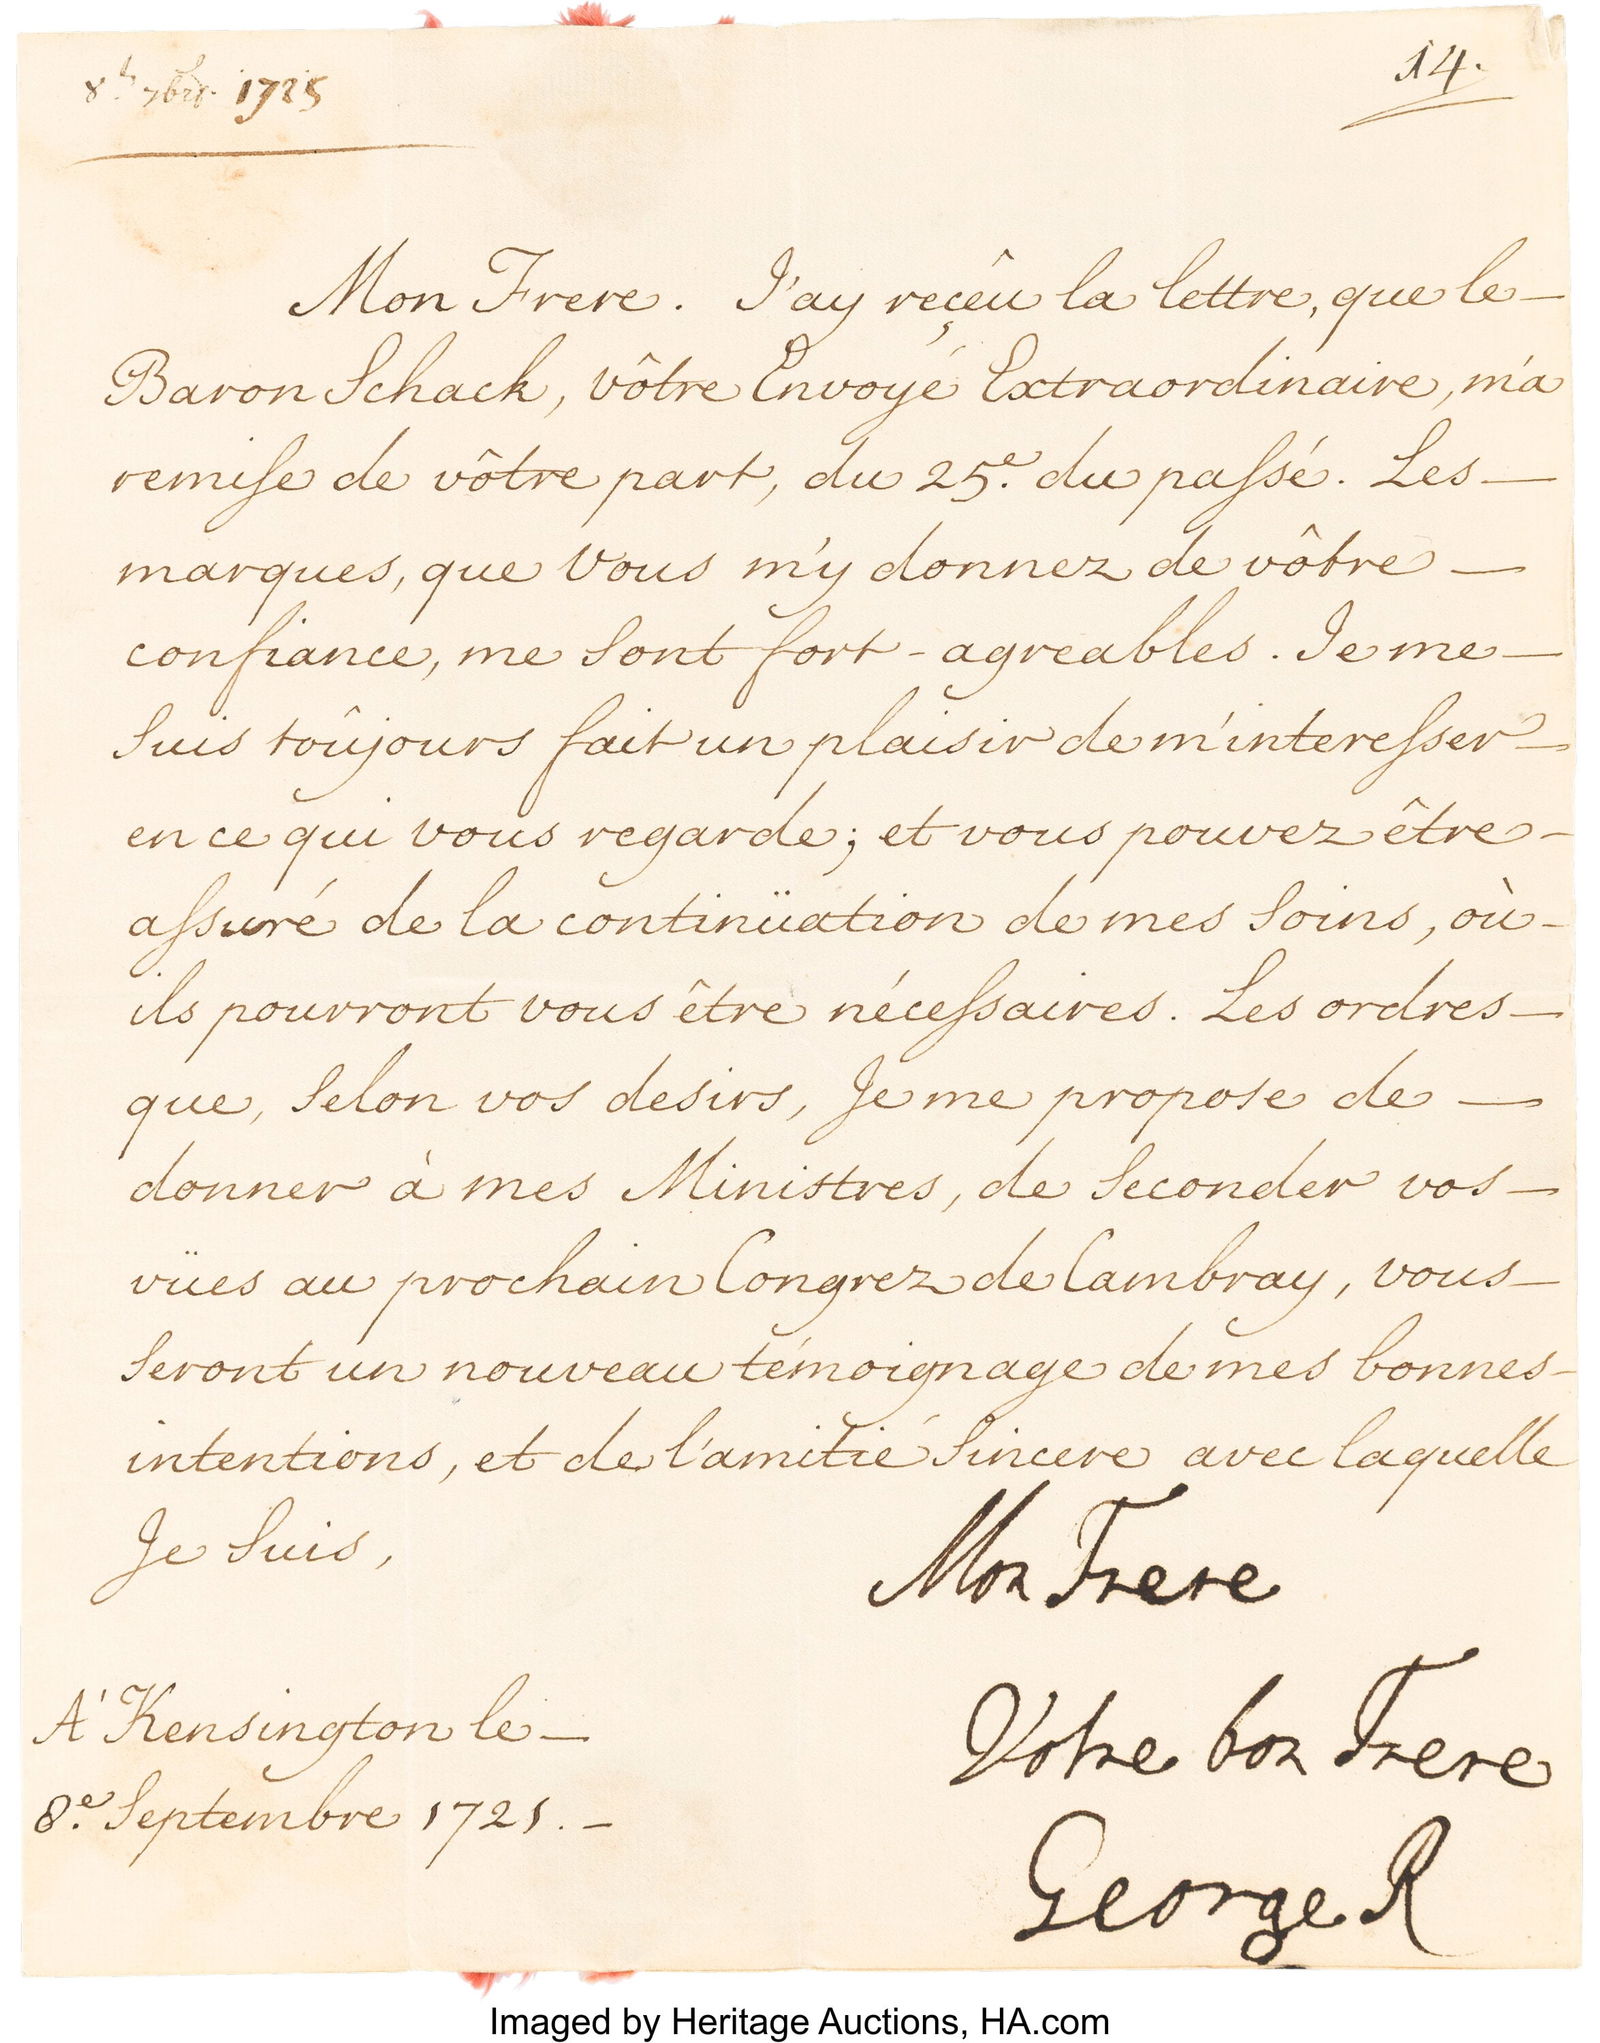 8.e 7br. 1725
14.
Mon Frere. J'ay reçeû la lettre, que le—
Baron Schack, vôtre Envoyé Extraordinaire, m'a
remise de vôtre part, du 25.e du passé. Les—
marques, que Vous m'y donnez de vôtre—
confiance, me sont fort-agreables. Je me—
suis toûjours fait un plaisir de m'interesser—
en ce qui vous regarde; et vous pouvez être-
assuré de la continüation de mes soins, où-
ils pourront vous être nécessaires. Les ordres—
que, selon vos desirs, Je me propose de—
donner à mes Ministres, de seconder vos—
vües au prochain Congrez de Cambray, vous—
seront un nouveau témoignage de mes bonnes-
intentions, et de l'amitié sincere avec laquelle
Je suis,
Mon Frere
Votre bon Frere
George R
A' Kensington le—
8.e Septembre 1721.—
Imaged by Heritage Auctions, HA.com